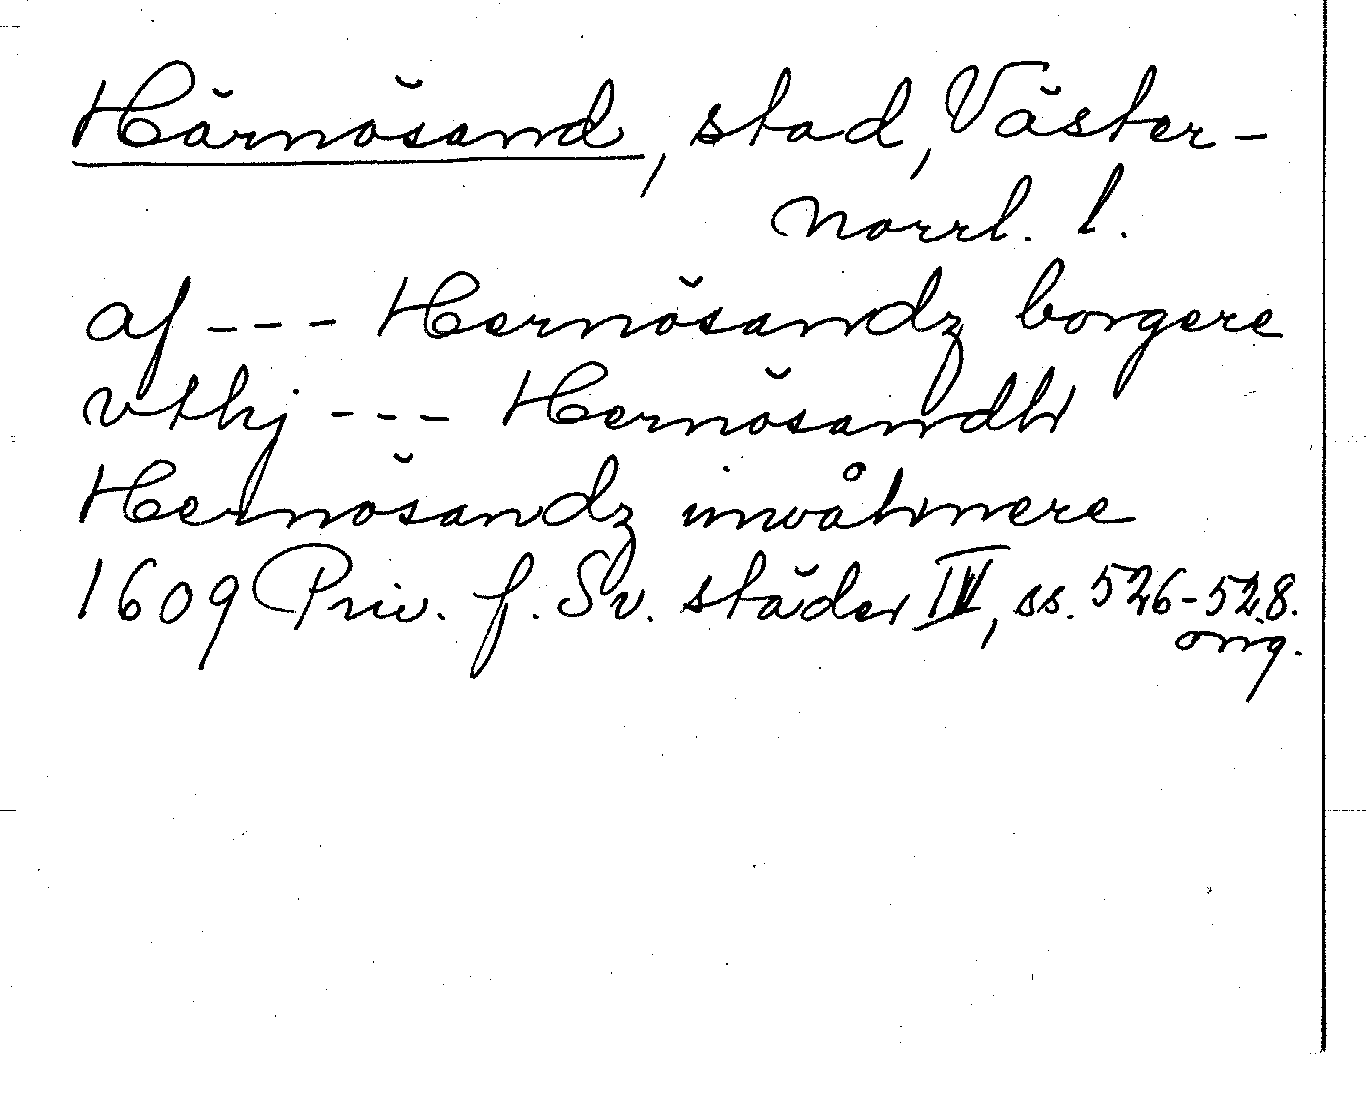 Härnösand, stad, Väster-
norrl. l.
af --- Hernösandz borgere
vthj --- Hernösandh
Hernösandz inwåhnere
1609 Priv. f. Sv. städer IV, ss. 526-528.
orig.